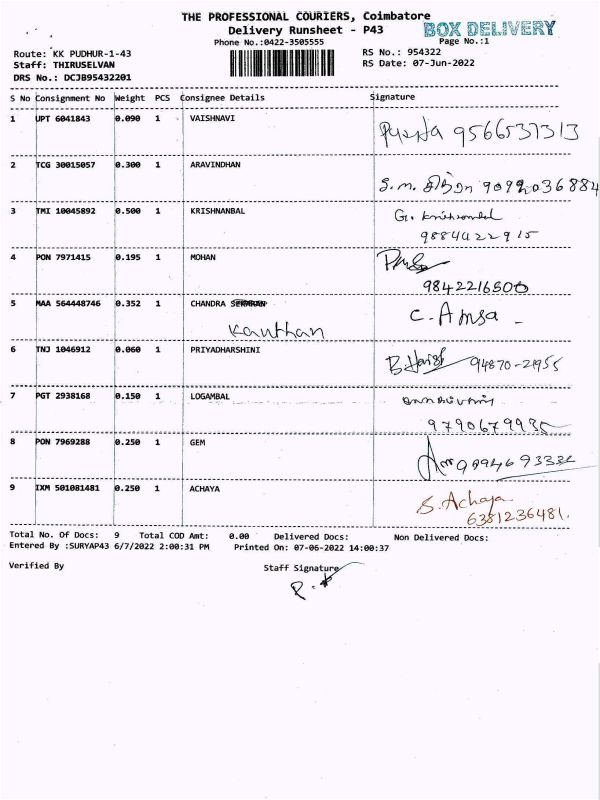 THE PROFESSIONAL COURIERS, Coimbatore
Delivery Runsheet - P43
BOX DELIVERY
Phone No.:0422-3505555
Page No.:1
Route: KK PUDHUR-1-43
RS No.: 954322
Staff: THIRUSELVAN
RS Date: 07-Jun-2022
DRS No.: DCJB95432201
S No Consignment No Weight PCS Consignee Details Signature
1 UPT 6041843 0.090 1 VAISHNAVI
9566537313
2 TCG 30015057 0.300 1 ARAVINDHAN
S.M. சித்ரா 9092036884
3 TMI 10045892 0.500 1 KRISHNANBAL
G.
9884422915
4 PON 7971415 0.195 1 MOHAN
9842216500
5 MAA 564448746 0.352 1 CHANDRA
Kanthan
C. Amsa
6 TNJ 1046912 0.060 1 PRIYADHARSHINI
B Harish 94870-21955
7 PGT 2938168 0.150 1 LOGAMBAL
9790679935
8 PON 7969288 0.250 1 GEM
9 IXM 501081481 0.250 1 ACHAYA
S. Achaya
6381236481.
Total No. Of Docs: 9 Total COD Amt: 0.00 Delivered Docs: Non Delivered Docs:
Entered By :SURYAP43 6/7/2022 2:00:31 PM Printed On: 07-06-2022 14:00:37
Verified By Staff Signature